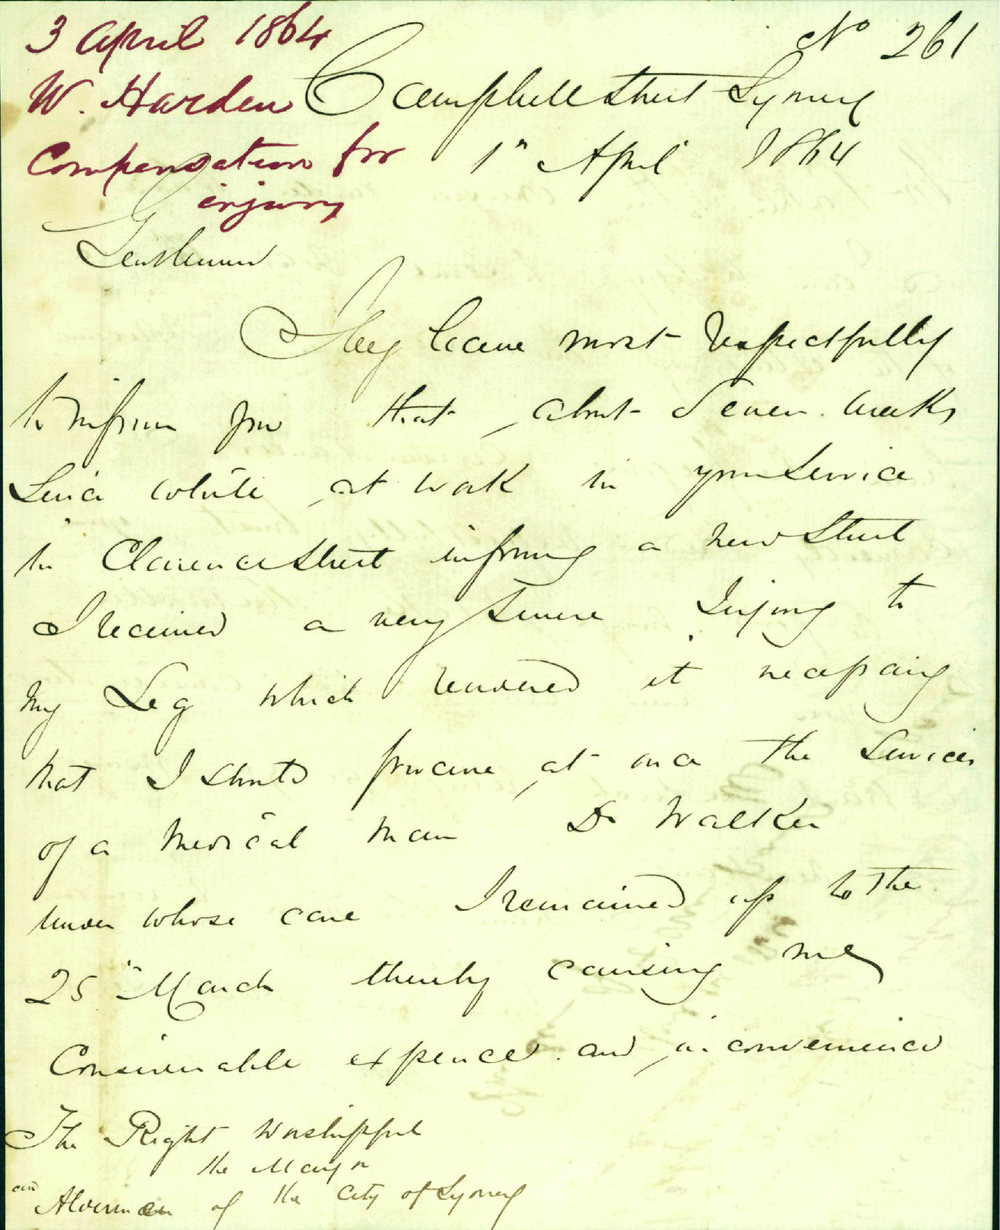 3 April 1864
No 261
W. Harden
Compensation for
injury
Campbell Street Sydney
1st April 1864
Gentlemen
I beg leave most respectfully
to inform you that about Seven weeks
Since while at work in your Service
in Clarence Street in forming a new Street
I received a very severe Injury to
my Leg which rendered it necessary
that I should procure at once the Services
of a Medical man Dr Walker
under whose care I remained up to the
25th March thereby causing me
Considerable expence and inconvenience
The Right Worshipful
the Mayor
and Aldermen of the City of Sydney